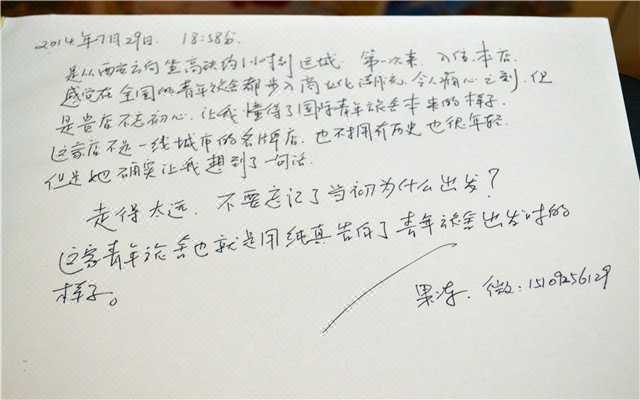 2014年7月29日. 18:58分.
是从西安方向坐高铁约1小时到运城 第一次来 入住本店.
感觉在全国的青年旅舍都步入商业化潮流,令人痛心之刻,但
是贵店不忘初心.让我懂得了国际青年旅舍本来的样子.
这家店不是一线城市的名牌店.也不拥有历史也很年轻.
但是她确实让我想到了一句话.
走得太远.不要忘记了当初为什么出发?
这家青年旅舍也就是用纯真告白了青年旅舍出发时的
样子。
果冻.微:15109256129